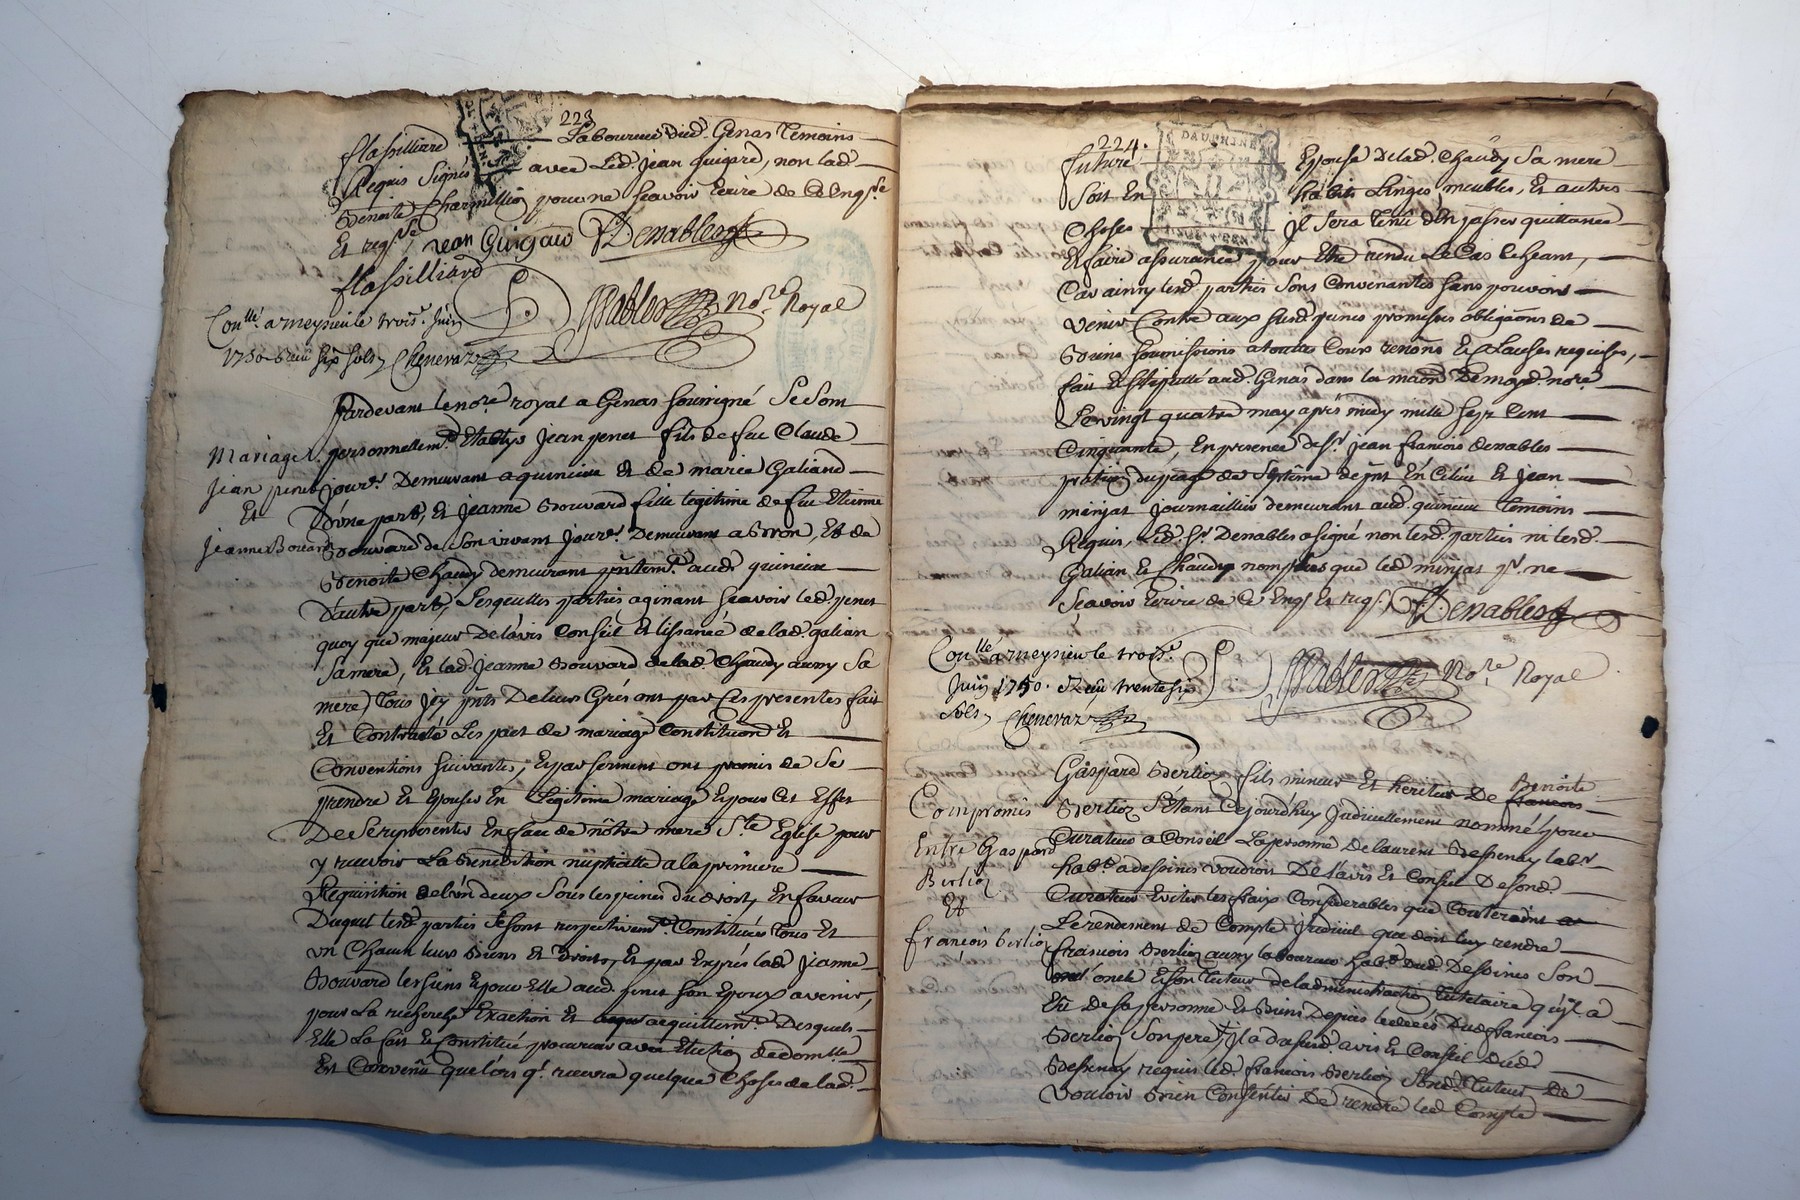 223
flassilliard Laboureur dud. Genas Temoins
Requis Signés avec Led. Jean Guigard, non lad.
Benoite Charmillion pour ne Scavoir Ecrire de Ce Enq.se
Et reqs.se Jean Guigard Denables
flassilliard
Nables No.re Royal
Con.llé a meysieu le trois.e Juin
1750 Reçu six sols Chenevaz
Pardevant le no.re royal a Genas Soussigné Se Sont
personnellem.t Etablys Jean penet fils de feu Claude
Mariage
Jean penet
Et
Jeanne Bouvard
jour.r Demeurant a quincieu Et de marie Galiand
D'une part, Et Jeanne Bouvard fille legitime de feu Etienne
Bouvard de Son vivant Jour.r Demeurant a Bron, Et de
Benoite Chaudy demeurant p̃ntem.t aud. quincieu
D'autre part, Lesquelles parties agissant Scavoir led. penet
quoy que majeur De l'avis Conseil Et lissance de lad. galian
Sa mere, Et lad. Jeanne Bouvard de lad. Chaudy aussy Sa
mere, Tous Icy p̃nts De leur Grés ont par Ces presentes fait
Et Contracté Les pact de mariage Constitution Et
Conventions Suivantes, Et par Serment ont promis de Se
prendre Et Epouser En Legitime mariage Et pour Cet Effet
De Se representer En face de nôtre mere S.te Eglise pour
y recevoir La Benediction nuptialle a la première
Requisition de l'un deux Sous les peines du droit, En faveur
Duquel lesd. parties Se sont respectivem.t Constituées Tous Et
un Chacun leurs Biens Et Droits, Et par Exprés lad. Jeanne
Bouvard les Siens Epour Elle aud. penet Son Epoux avenir,
pour La recherche Exaction Et acquittem.t Desquels
Elle La fait Et Constitué procureur avec Election de domlle
Est Convenû que lors q.l recevra quelque Choses de lad.
224.
DAUPHINE
future Epouse De lad. Chaudy Sa mere
Soit En habits Linges meubles, Et autres
Choses Jl Sera Tenû d'En passer quittance
Et faire assurance pour Etre rendu Le Cas Echeant,
Car ainsy lesd. parties Sont Convenantes Sans pouvoir
Venir Contre aux Susd. peines promesses obligãons de
Biens Soumissions a toutes Cours renõns Et Clauses requises,
fait Et Stipullé aud. Genas dans la maõn De moyd. nore
Le vingt quatre may aprés midy mille Sept Cent
Cinquante, En presence de S.r Jean francois denables
praticien du present lieu
minjat journaillier demeurant aud. quincieu Temoins
Requis, Led. S.r Denables a Signé non lesd. parties ni lesd.
Galian Et Chaudy non plus que led. minjat p.r ne
Scavoir Ecrire de Ce Enq. Et reqs. Denables
Con.llé a meysieu le trois.e
Juin 1750. Reçu trente six
sols Chenevaz
Nables No.re Royal
Gaspard Berlioz fils mineur Et heritier De Benoite
Compromis
Entre Gaspard
Berlioz
Et
françois Berlioz
Berlioz S'Etant Cejourd'huy Judiciellement nommé pour
Curateur a Conseil La personne de laurent Despenay lab.r
hab.t a dessines voudroit De l'avis Et Conseil De Sond.
Curateur Eviter les fraix Considerables que Couteroint
Le rendement de Compte Judiciel que doit luy rendre
francois Berlioz aussy laboureur hab.t dud. Dessines Son
oncle Et Son Tuteur de Ladministration Tutelaire qu'il a
Eû De Sa personne Et Biens Depuis le decés Dud. francois
Berlioz Son pere, Jl a du Susd. avis Et Conseil dud.
Despenay requis led. francois Berlioz Sond. Tuteur De
Vouloir Bien Consentir De rendre led. Compte